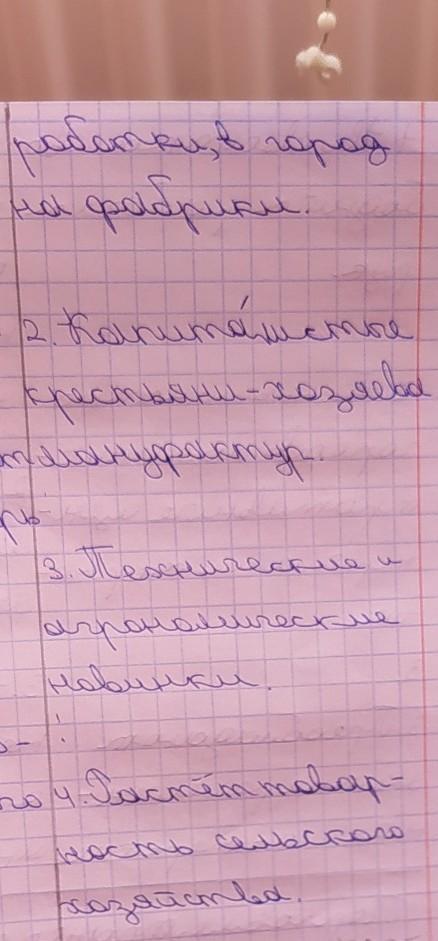 работки, в город
на фабрики.
2. Капита́листые
крестьяни-хозяева
мануфактур.
рь
3. Технические и
агрономические
новинки.
го 4. Растёт товар-
ность сельского
хозяйства.